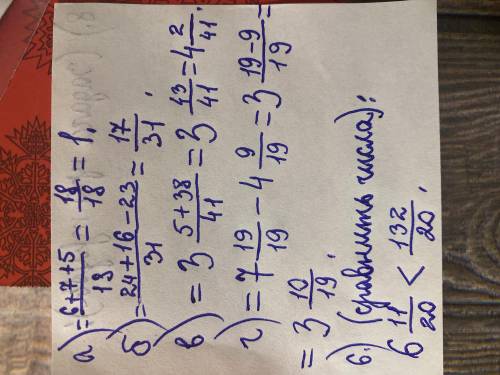 а) = 6+7+5/18 = 18/18 = 1.
б) = 24+16-23/31 = 17/31.
в) = 3 5+38/41 = 3 43/41 = 4 2/41.
г) = 7 19/19 - 4 9/19 = 3 19-9/19 =
= 3 10/19.
6.) (сравнить числа):
6 11/20 < 132/20.